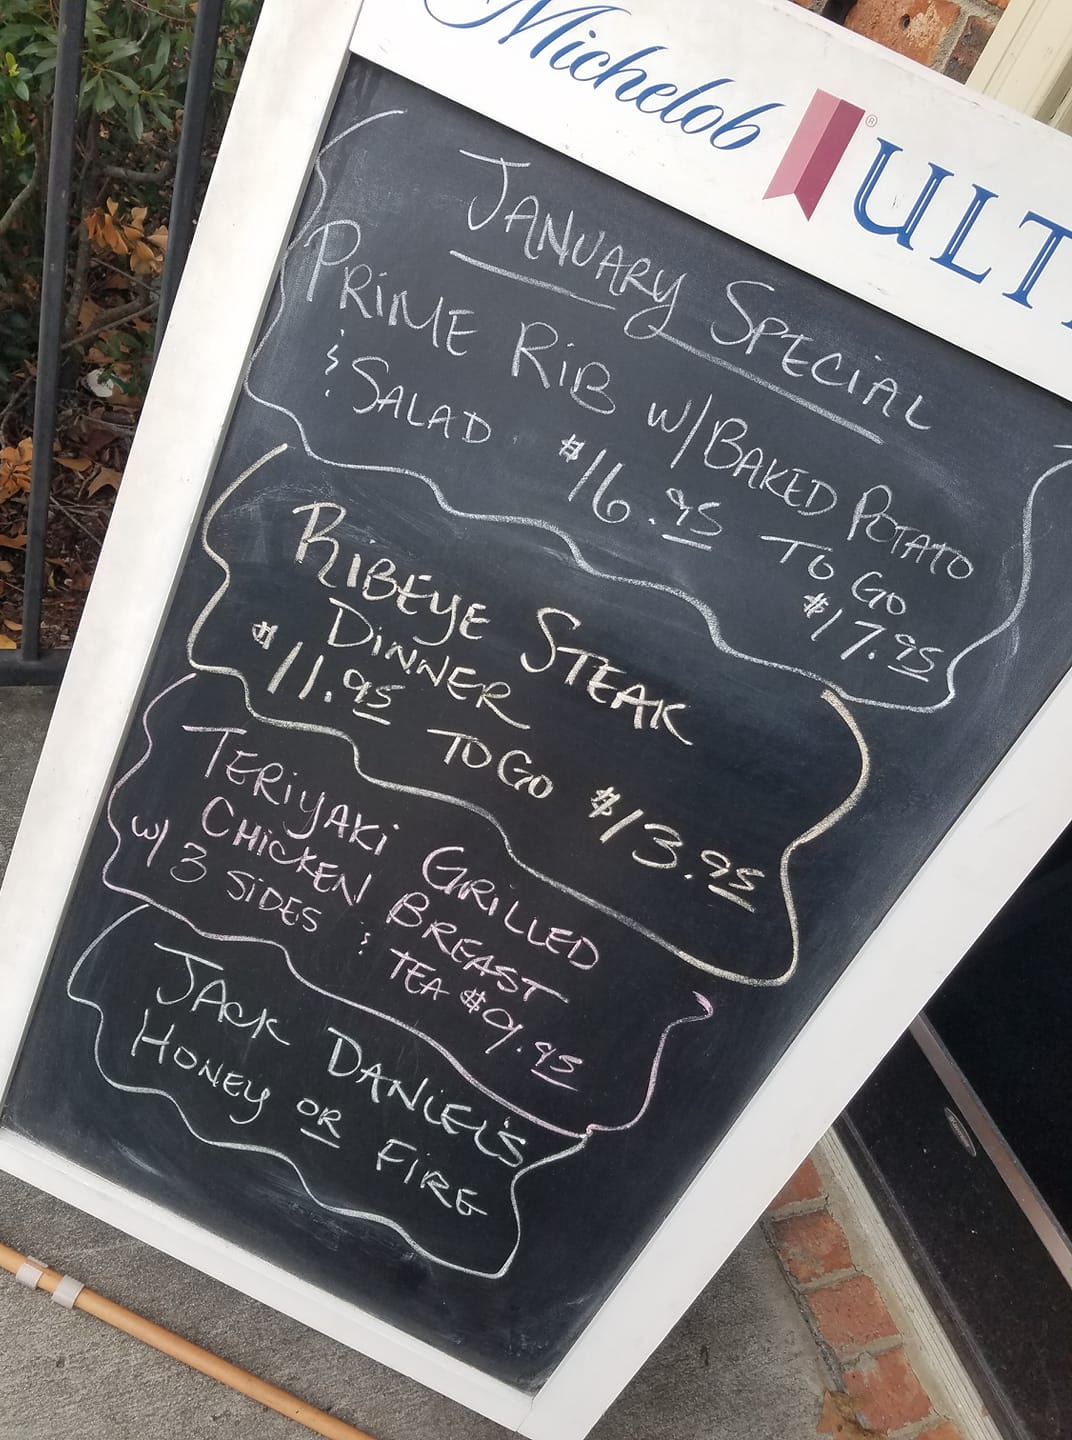 Michelob ® ULT
JANUARY SPECIAL
PRIME RIB W/BAKED POTATO
& SALAD $16.95 TO GO
$17.95
RIBEYE STEAK
DINNER
$11.95 TO GO $13.95
TERIYAKI GRILLED
CHICKEN BREAST
W/ 3 SIDES & TEA $9.95
JACK DANIEL'S
HONEY OR FIRE